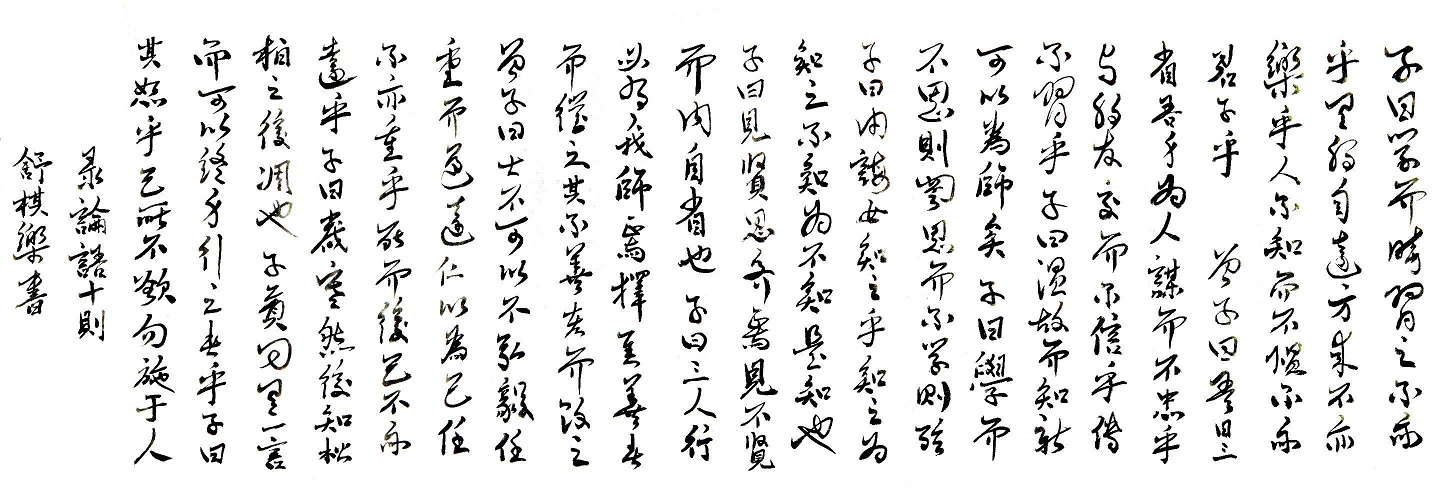 子曰学而時習之不亦
乎有朋自遠方來不亦
樂乎人不知而不慍不亦
君子乎 曾子曰吾日三
省吾身為人謀而不忠乎
与朋友交而不信乎傳
不習乎子曰温故而知新
可以為師矣子曰學而
不思則罔思而不学則殆
子曰由誨女知之乎知之为
知之不知为不知是知也
子曰見賢思齊焉見不賢
而内自省也子曰三人行
必有我師焉擇其善者
而從之其不善者而改之
曾子曰士不可以不弘毅任
重而道遠仁以為己任
不亦重乎死而後已不亦
遠乎子曰歲寒然後知松
柏之後凋也子貢问有一言
而可以終身行之者乎子曰
其恕乎己所不欲勿施于人
录論語十則
舒棋樂書